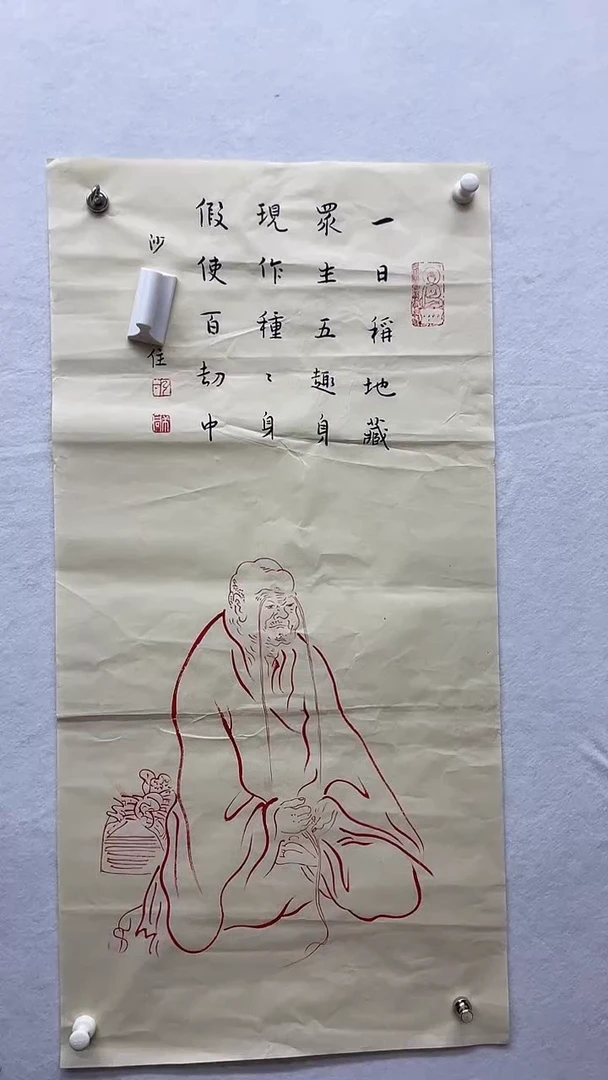 一日稱地藏
眾生五趣身
現作種〻身
假使百劫中
沙
住